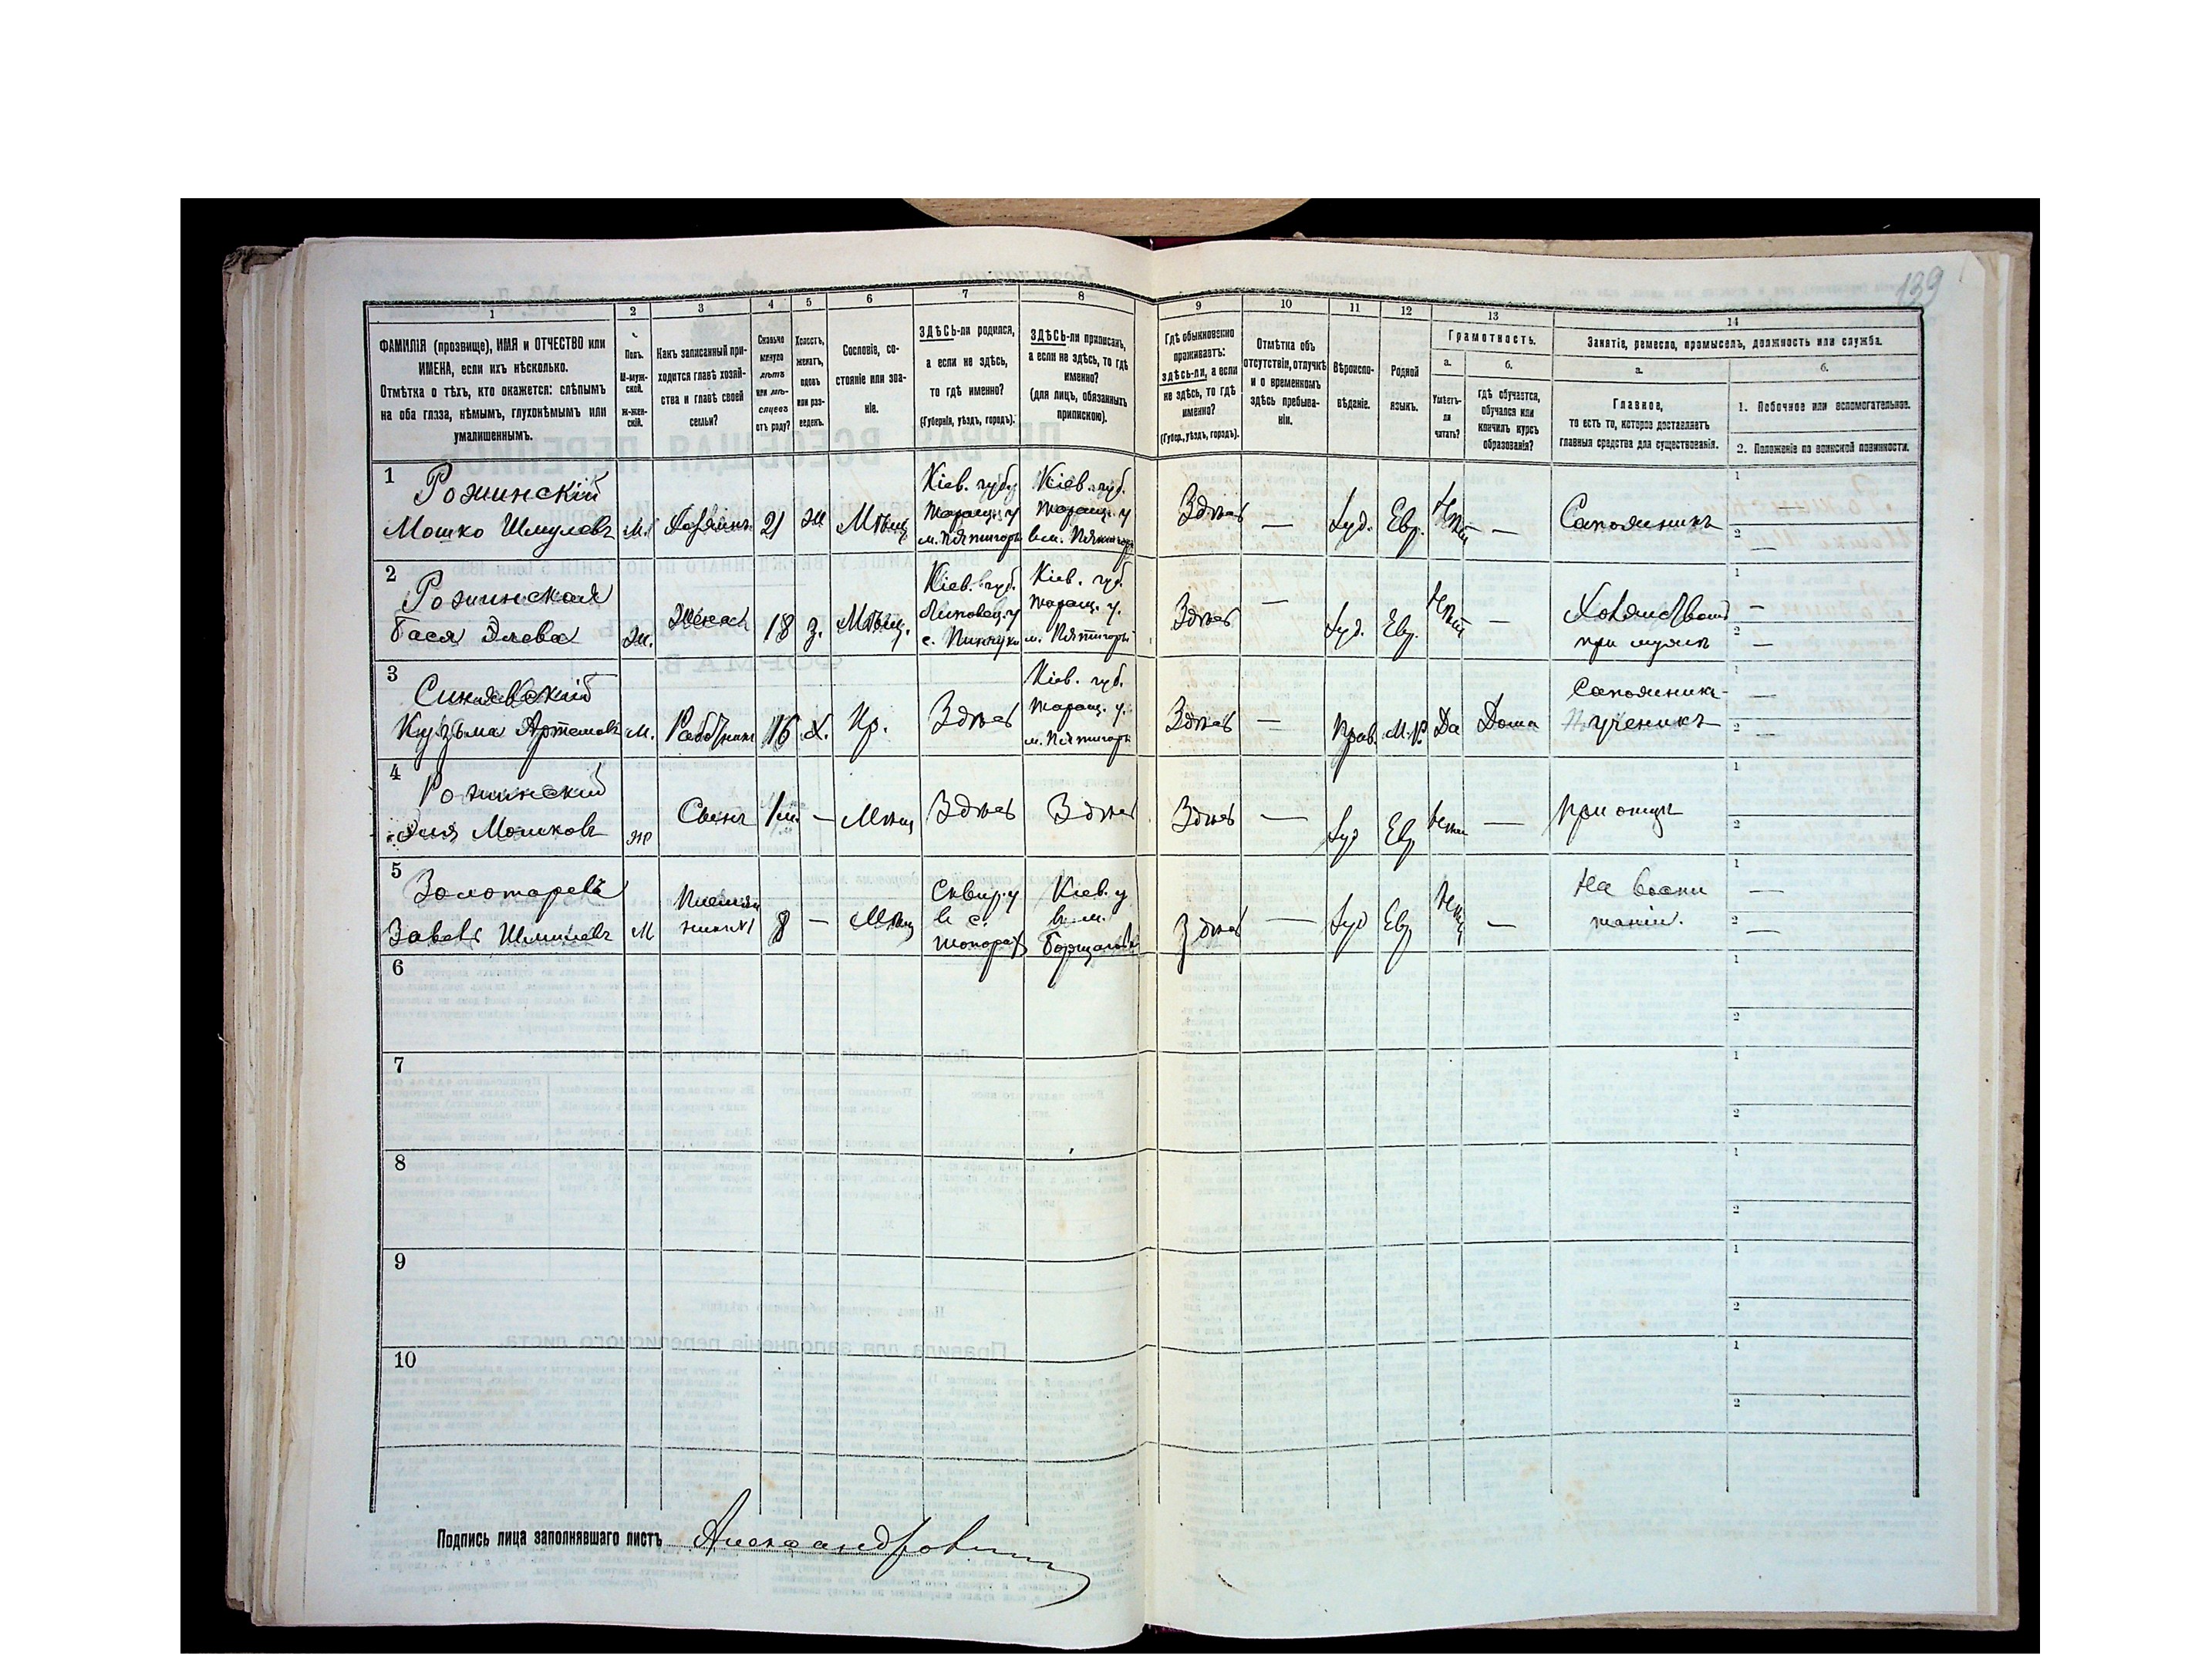 139
1
2
3
4
5
6
7
8
9
10
11
12
13
14
ФАМИЛІЯ (прозвище), ИМЯ и ОТЧЕСТВО или
ИМЕНА, если ихъ нѣсколько.
Отмѣтка о тѣхъ, кто окажется: слѣпымъ
на оба глаза, нѣмымъ, глухонѣмымъ или
умалишеннымъ.
Полъ.
М-муж-
ской.
Ж-жен-
скій.
Какъ записанный при-
ходится главѣ хозяй-
ства и главѣ своей
семьи?
Сколько
минуло
лѣтъ
или мѣ-
сяцевъ
отъ роду?
Холостъ,
женатъ,
вдовъ
или раз-
веденъ.
Сословіе, со-
стояніе или зва-
ніе.
ЗДѢСЬ-ли родился,
а если не здѣсь,
то гдѣ именно?
(Губернія, уѣздъ, городъ).
ЗДѢСЬ-ли приписанъ,
а если не здѣсь, то гдѣ
именно?
(для лицъ, обязанныхъ
припискою).
Гдѣ обыкновенно
проживаетъ:
здѣсь-ли, а если
не здѣсь, то гдѣ
именно?
(Губер., уѣздъ, городъ).
Отмѣтка объ
отсутствіи, отлучкѣ
и о временномъ
здѣсь пребыва-
ніи.
Вѣроиспо-
вѣданіе.
Родной
языкъ.
Грамотность.
а.
Умѣетъ-
ли
читать?
б.
гдѣ обучается,
обучался или
кончилъ курсъ
образованія?
Занятіе, ремесло, промыселъ, должность или служба.
а.
Главное,
то есть то, которое доставляетъ
главныя средства для существованія.
б.
1. Побочное или вспомогательное.
2. Положеніе по воинской повинности.
1 Рожинскій
Мошко Шмулевъ
М.
Хозяинъ
21
ж
Мѣщ.
Кіев. губ.
Таращ. у
м. Пятигоры
Кіев. губ.
Таращ. у
в м. Пятигоры
Здѣсь
—
Іуд.
Евр.
Нѣтъ
—
Сапожникъ
1 —
2 —
2 Рожинская
Бася Элева
Ж.
Жена
18
з.
Мѣщ.
Кіев. губ.
Липовец. у
с.
Кіев. губ.
Таращ. у.
м. Пятигоры
Здѣсь
—
Іуд.
Евр.
Нѣтъ
—
при мужѣ
1 —
2 —
3 Синявскій
Кузьма Артемовъ
М.
Работникъ
16
Х.
Кр.
Здѣсь
Кіев. губ.
Таращ. у.
м. Пятигоры
Здѣсь
—
Прав.
М.Р.
Да
Дома
Сапожника
ученикъ
1 —
2 —
4 Рожинскій
Эля Мошковъ
Сынъ
1 м.
—
Мѣщ
Здѣсь
Здѣсь
Здѣсь
—
Іуд
Евр
Нѣтъ
—
При отцѣ
1
2
5 Золотаревъ
Шмилевъ
М
Племян
никъ
8
—
Мѣщ
Сквир. у
в с.
Топорах
Кіев. у
в м.
Здѣсь
—
Іуд
Евр
Нѣтъ
—
На воспи
таніи.
1 —
2 —
6
1
2
7
1
2
8
1
2
9
1
2
10
1
2
Подпись лица заполнявшаго листъ